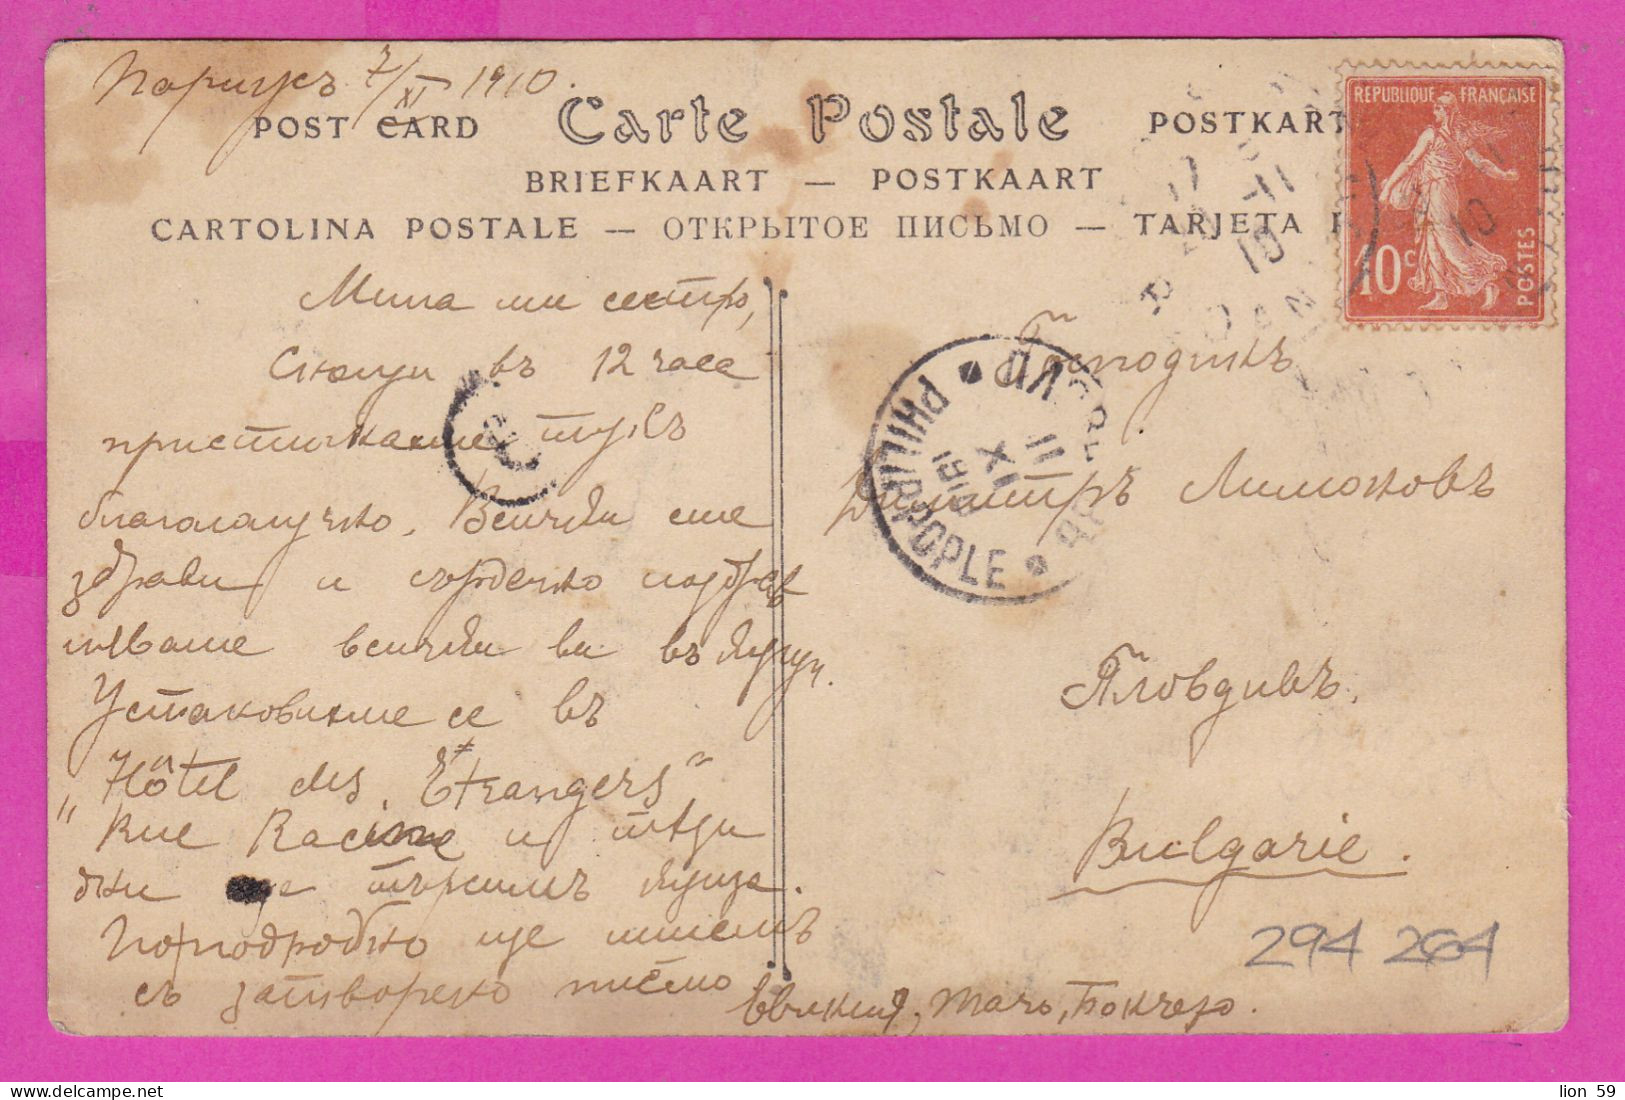 Парижъ 7/XI 1910.
POST CARD Carte Postale POSTKART
BRIEFKAART — POSTKAART
CARTOLINA POSTALE — ОТКРЫТОЕ ПИСЬМО — TARJETA
REPUBLIQUE FRANÇAISE
10c
POSTES
Мила ми сестро,
въ 12 часа
пристигнахме тукъ
благополучно. Всички сме
здрави и сърдечно поздрав
яваме всички ви въ
Установихме се въ
"Hôtel des Étrangers"
Rue Racine и тѣзи
дни ще търсимъ кѫща.
По-подробно ще пишемъ
съ затворено писмо
Тачо, Бокчего.
Господинъ
Димитръ Лимоновъ
Пловдивъ.
Bulgarie.
PHILIPPOPLE
294 264
lion 59